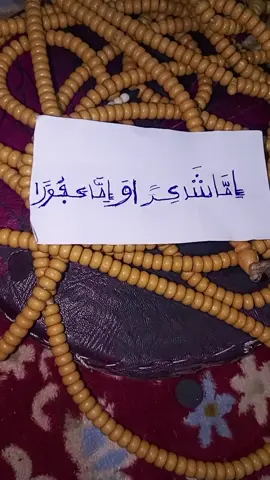 إِمَّا شَكِرَ اوَ إِمَّا كَفُورَا